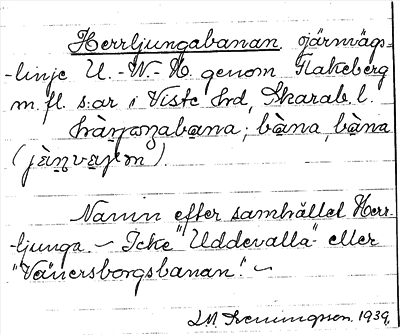 Herrljungabanan, järnvägs-
-linje U.-W.-H. genom Flakeberg
m. fl. s:ar i Viste hd, Skarab. l.
hæ̀r̥ɷŋabana; bàna, bàna
(jà̀ṇvæɡen).
Namn efter samhället Herr-
-ljunga. - Icke "Uddevalla" eller
"Vänersborgsbanan". -
1939.